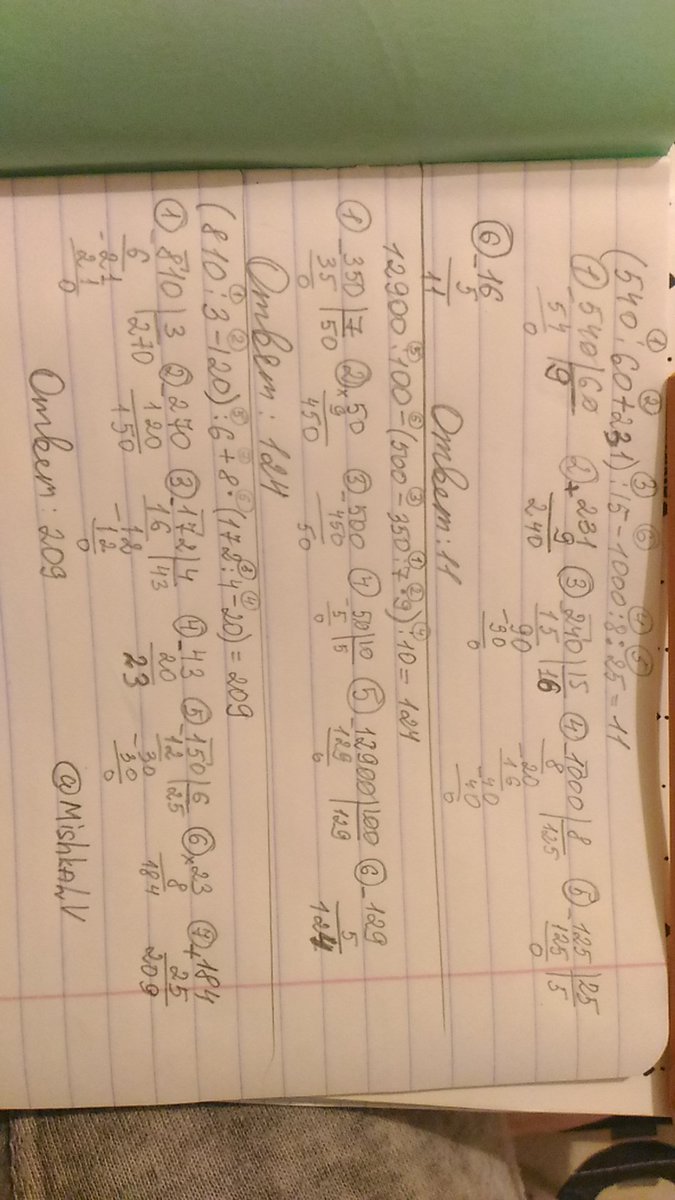 (540:60+231):15-1000:8:25=11
① ② ③ ⑥ ④ ⑤
① 540 | 60 ② +231 ③ 240 | 15 ④ 1000 | 8 ⑤ 125 | 25
54 | 9 9 15 | 16 8 | 125 125 | 5
0 240 90 -20 0
-90 16
0 -40
40
0
⑥ -16
5
11
Ответ: 11
12900:100-(500-350:7·9):10=124
⑤ ⑥ ③ ① ② ④
① 350 | 7 ② ×50 ③ -500 ④ 50 | 10 ⑤ 12900 | 100 ⑥ -129
35 | 50 9 450 5 | 5 129 | 129 5
0 450 50 0 0 124
Ответ: 124
(810:3-120):6+8·(172:4-20)=209
① ② ⑤ ⑦ ⑥ ③ ④
① 810 | 3 ② -270 ③ 172 | 4 ④ -43 ⑤ 150 | 6 ⑥ ×23 ⑦ +184
6 | 270 120 16 | 43 20 12 | 25 8 25
-21 150 -12 23 -30 184 209
21 12 30
0 0 0
Ответ: 209
@MishkaLV